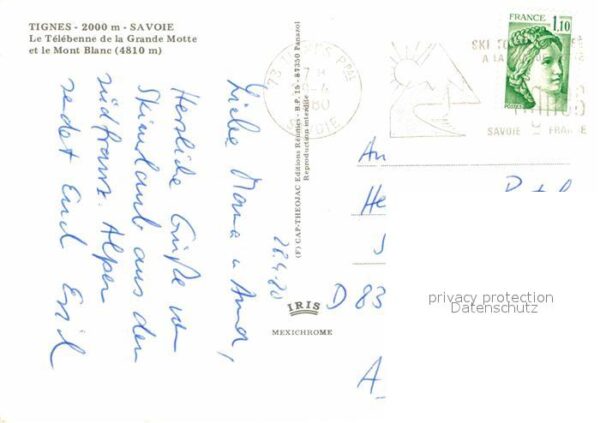 TIGNES - 2000 m - SAVOIE
Le Télébenne de la Grande Motte
et le Mont Blanc (4810 m)
28.4.80
Liebe Mama u
Herzliche Grüße vom
Skiurlaub aus den
südfranz. Alpen
sendet Euch
(F) CAP-THEOJAC Editions Réunies - B.P. 15 - 87350 Panazol
Reproduction interdite
IRIS
MEXICHROME
73 TIGNES PPAL
SAVOIE
SKI
A LA
SAVOIE FRANCE
FRANCE
1,10
POSTES
An
D 83
privacy protection
Datenschutz
A